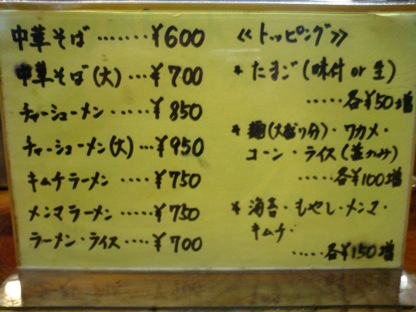 中華そば‥‥‥¥600
中華そば(大)‥¥700
チャーシューメン‥‥¥850
チャーシューメン(大)‥¥950
キムチラーメン‥‥¥750
メンマラーメン‥‥¥750
ラーメン・ライス‥‥¥700
≪トッピング≫
* たまご(味付 or 生)
‥‥‥各¥50増
* 麺(大盛り分)・ワカメ・
コーン・ライス(並のみ)
‥‥各¥100増
* 海苔・もやし・メンマ・
キムチ・
‥‥‥各¥150増